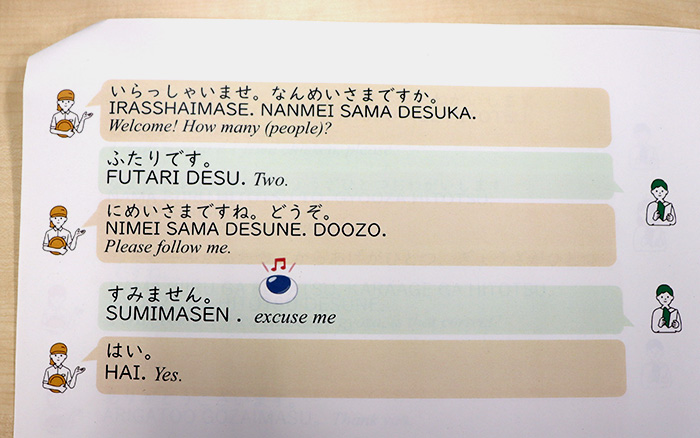 いらっしゃいませ。なんめいさまですか。
IRASSHAIMASE. NANMEI SAMA DESUKA.
Welcome! How many (people)?
ふたりです。
FUTARI DESU. Two.
にめいさまですね。どうぞ。
NIMEI SAMA DESUNE. DOOZO.
Please follow me.
すみません。
SUMIMASEN . excuse me
はい。
HAI. Yes.